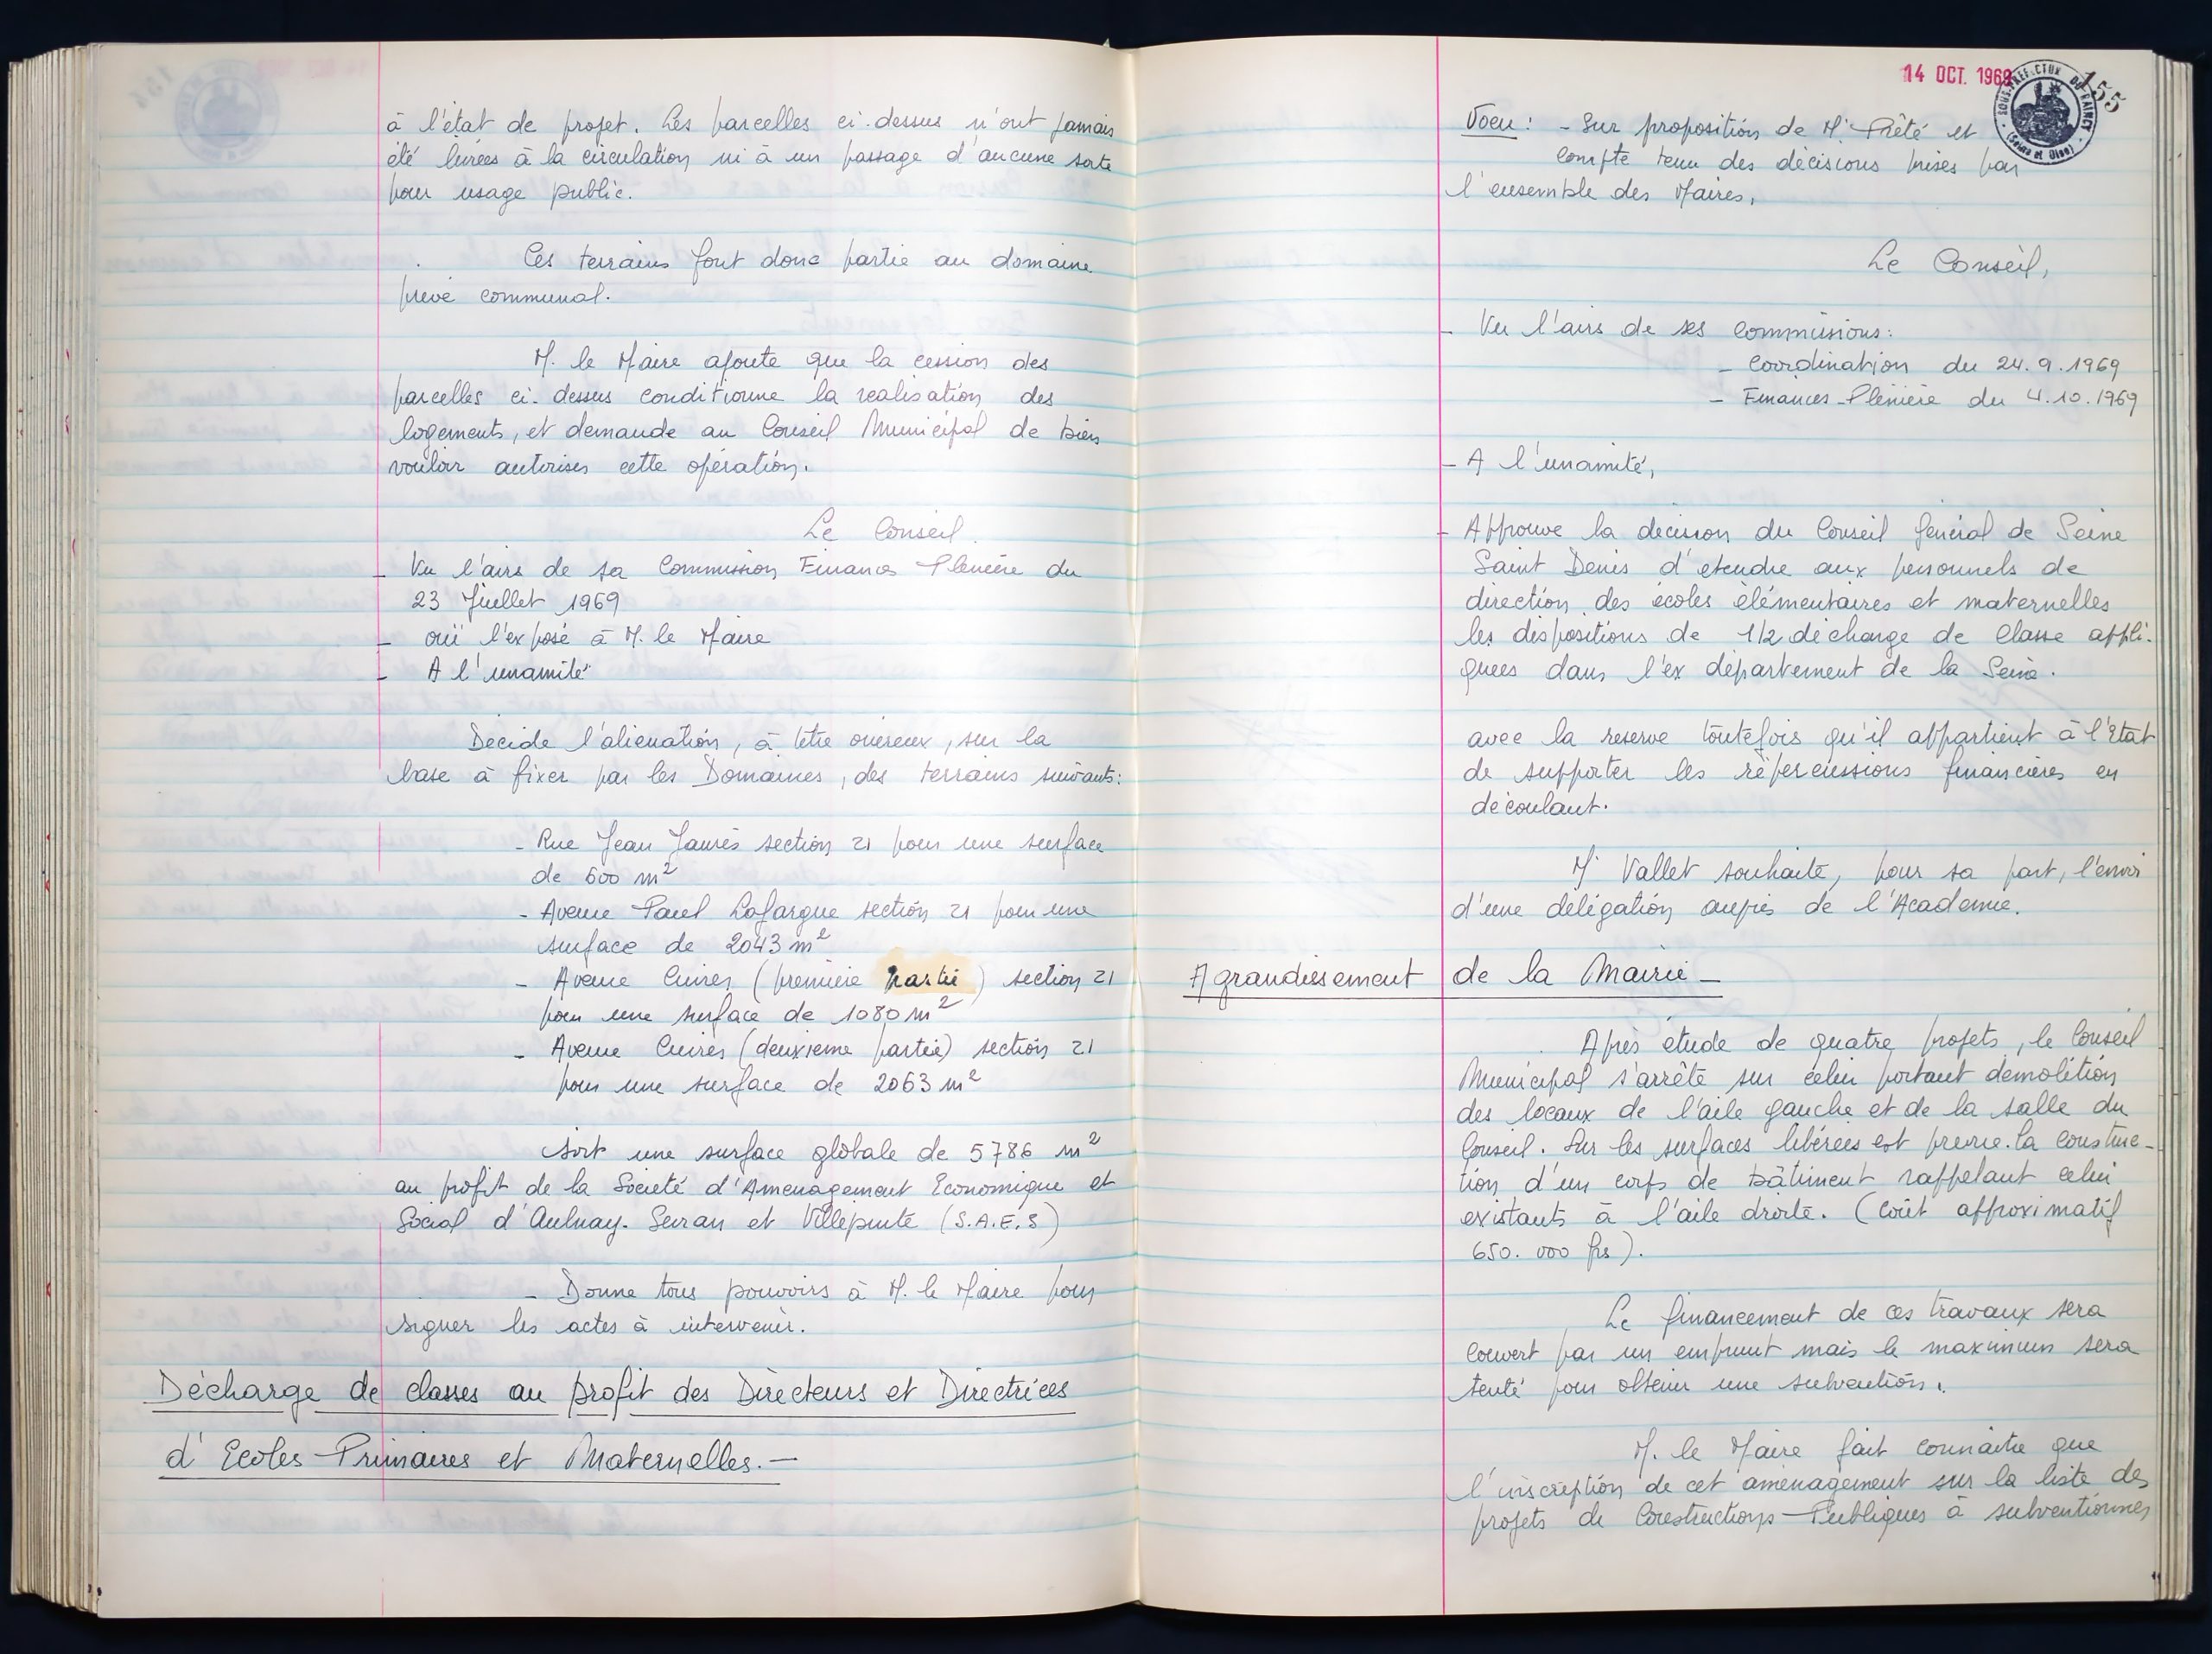 à l'état de projet. Les parcelles ci-dessus n'ont jamais
été livrées à la circulation ni à un passage d'aucune sorte
pour usage public.
Ces terrains font donc partie au domaine
privé communal.
M. le Maire ajoute que la cession des
parcelles ci-dessus conditionne la réalisation des
logements, et demande au Conseil Municipal de bien
vouloir autoriser cette opération.
Le Conseil.
- Vu l'avis de sa Commission Finances Plénière du
23 Juillet 1969
- ouï l'exposé à M. le Maire
- A l'unamité
Décide l'aliénation, à titre onéreux, sur la
base à fixer par les Domaines, des terrains suivants:
- Rue Jean Jaurès section 21 pour une surface
de 600 m²
- Avenue Paul Lafargue section 21 pour une
surface de 2043 m²
- Avenue (première partie) section 21
pour une surface de 1080 m²
- Avenue (deuxième partie) section 21
pour une surface de 2063 m²
soit une surface globale de 5786 m²
au profit de la Société d'Aménagement Economique et
Social d'Aulnay-Sevran et Villepinte (S.A.E.S)
- Donne tous pouvoirs à M. le Maire pour
signer les actes à intervenir.
Décharge de classes au profit des Directeurs et Directrices
d'Ecoles Primaires et Maternelles.-
14 OCT. 1969
155
SOUS-PRÉFECTURE DU RAINCY
(Seine et Oise)
Voeu: - Sur proposition de Mr et
compte tenu des décisions prises par
l'ensemble des Maires,
Le Conseil,
- Vu l'avis de ses commissions:
- Coordination du 24.9.1969
- Finances-Plénière du 4.10.1969
- A l'unamité,
- Approuve la décision du Conseil Général de Seine
Saint Denis d'étendre aux personnels de
direction des écoles élémentaires et maternelles
les dispositions de 1/2 décharge de classe appli-
quées dans l'ex département de la Seine.
avec la réserve toutefois qu'il appartient à l'Etat
de supporter les répercussions financières en
découlant.
Mr Vallet souhaite, pour sa part, l'envoi
d'une délégation auprès de l'Académie.
Agrandissement de la Mairie -
Après étude de quatre projets, le Conseil
Municipal s'arrête sur celui portant démolition
des locaux de l'aile gauche et de la salle du
Conseil. Sur les surfaces libérées est prévue la construc-
tion d'un corps de bâtiment rappelant celui
existants à l'aile droite. (Coût approximatif
650.000 frs).
Le financement de ces travaux sera
couvert par un emprunt mais le maximum sera
tenté pour obtenir une subvention.
M. le Maire fait connaître que
l'inscription de cet aménagement sur la liste des
projets de Constructions-Publiques à subventionner